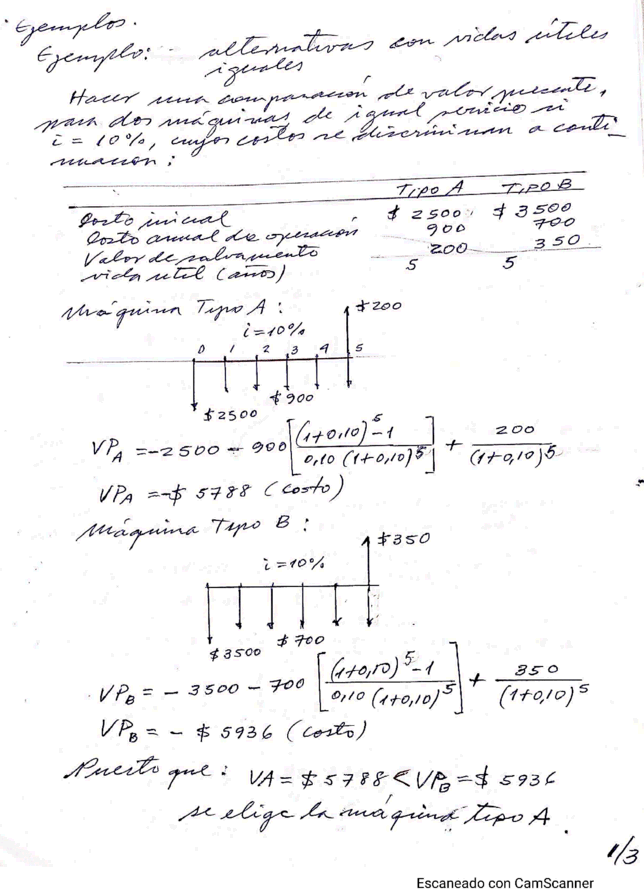 Ejemplos.
Ejemplo: alternativas con vidas útiles
iguales
Hacer una comparación de valor presente,
para dos máquinas de igual servicio si
i = 10%, cuyos costos se discriminan a conti_
nuación:
TIPO A TIPO B
Costo inicial $ 2500 $ 3500
Costo anual de operación 900 700
Valor de salvamento 200 350
vida util (años) 5 5
Máquina Tipo A: $200
i=10%
0 1 2 3 4 5
$900
$2500
VPA = -2500 - 900 [(1+0,10)^5-1 / 0,10 (1+0,10)^5] + 200 / (1+0,10)^5
VPA = -$ 5788 (costo)
Máquina Tipo B:
$350
i=10%
$3500 $700
VPB = - 3500 - 700 [(1+0,10)^5-1 / 0,10 (1+0,10)^5] + 350 / (1+0,10)^5
VPB = - $ 5936 (costo)
Puesto que: VA = $ 5788 < VPB = $ 5936
se elige la máquina tipo A.
1/3
Escaneado con CamScanner